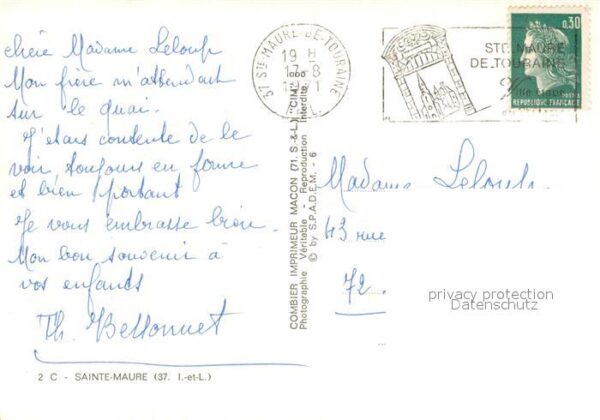 chère Madame Leloup
Mon frère m'attendait
sur le quai.
J'étais contente de le
voir, toujours en forme
et bien portant
Je vous embrasse bien
Mon bon souvenir à
vos enfants
Th.
2 C - SAINTE-MAURE (37. I.-et-L.)
COMBIER IMPRIMEUR MACON (71. S.-&-L.) "CIM"
Photographie Véritable - Reproduction Interdite
© by S.P.A.D.E.M. - 6
37 STE-MAURE-DE-TOURAINE
19 H
17-8
1971
STE MAURE
DE TOURAINE
0,30
REPUBLIQUE FRANÇAISE
POSTES
Madame Leloup
43 rue
72.
privacy protection
Datenschutz